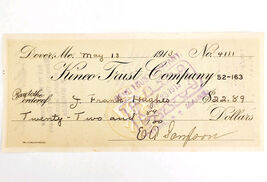 Dover, Mo. May 13 1913 No. 4111
Kinco Trust Company 52-163
Pay to the order of J. Frank Hughes $22.89
Twenty-Two and 89/100 Dollars